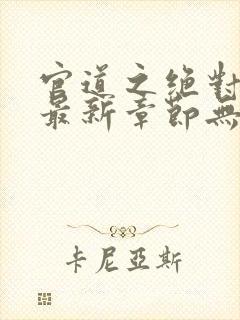 官道之絶對
最新章節無
卡尼亞斯